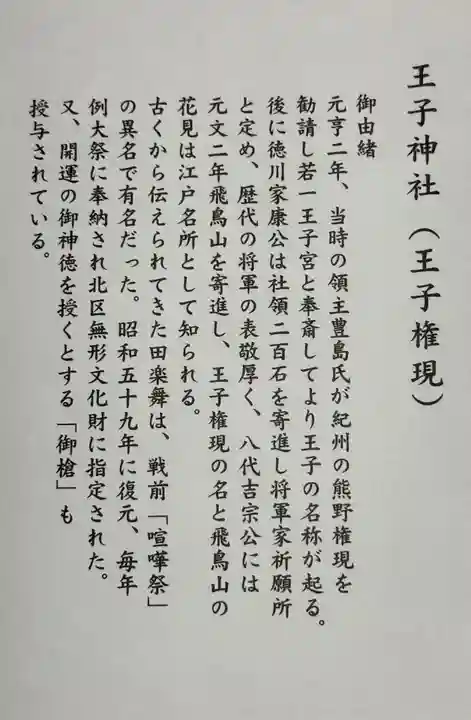 王子神社（王子権現）
御由緒
元亨二年、当時の領主豊島氏が紀州の熊野権現を
勧請し若一王子宮と奉斎してより王子の名称が起る。
後に徳川家康公は社領二百石を寄進し将軍家祈願所
と定め、歴代の将軍の表敬厚く、八代吉宗公には
元文二年飛鳥山を寄進し、王子権現の名と飛鳥山の
花見は江戸名所として知られる。
古くから伝えられてきた田楽舞は、戦前「喧嘩祭」
の異名で有名だった。昭和五十九年に復元、毎年
例大祭に奉納され北区無形文化財に指定された。
又、開運の御神徳を授くとする「御槍」も
授与されている。